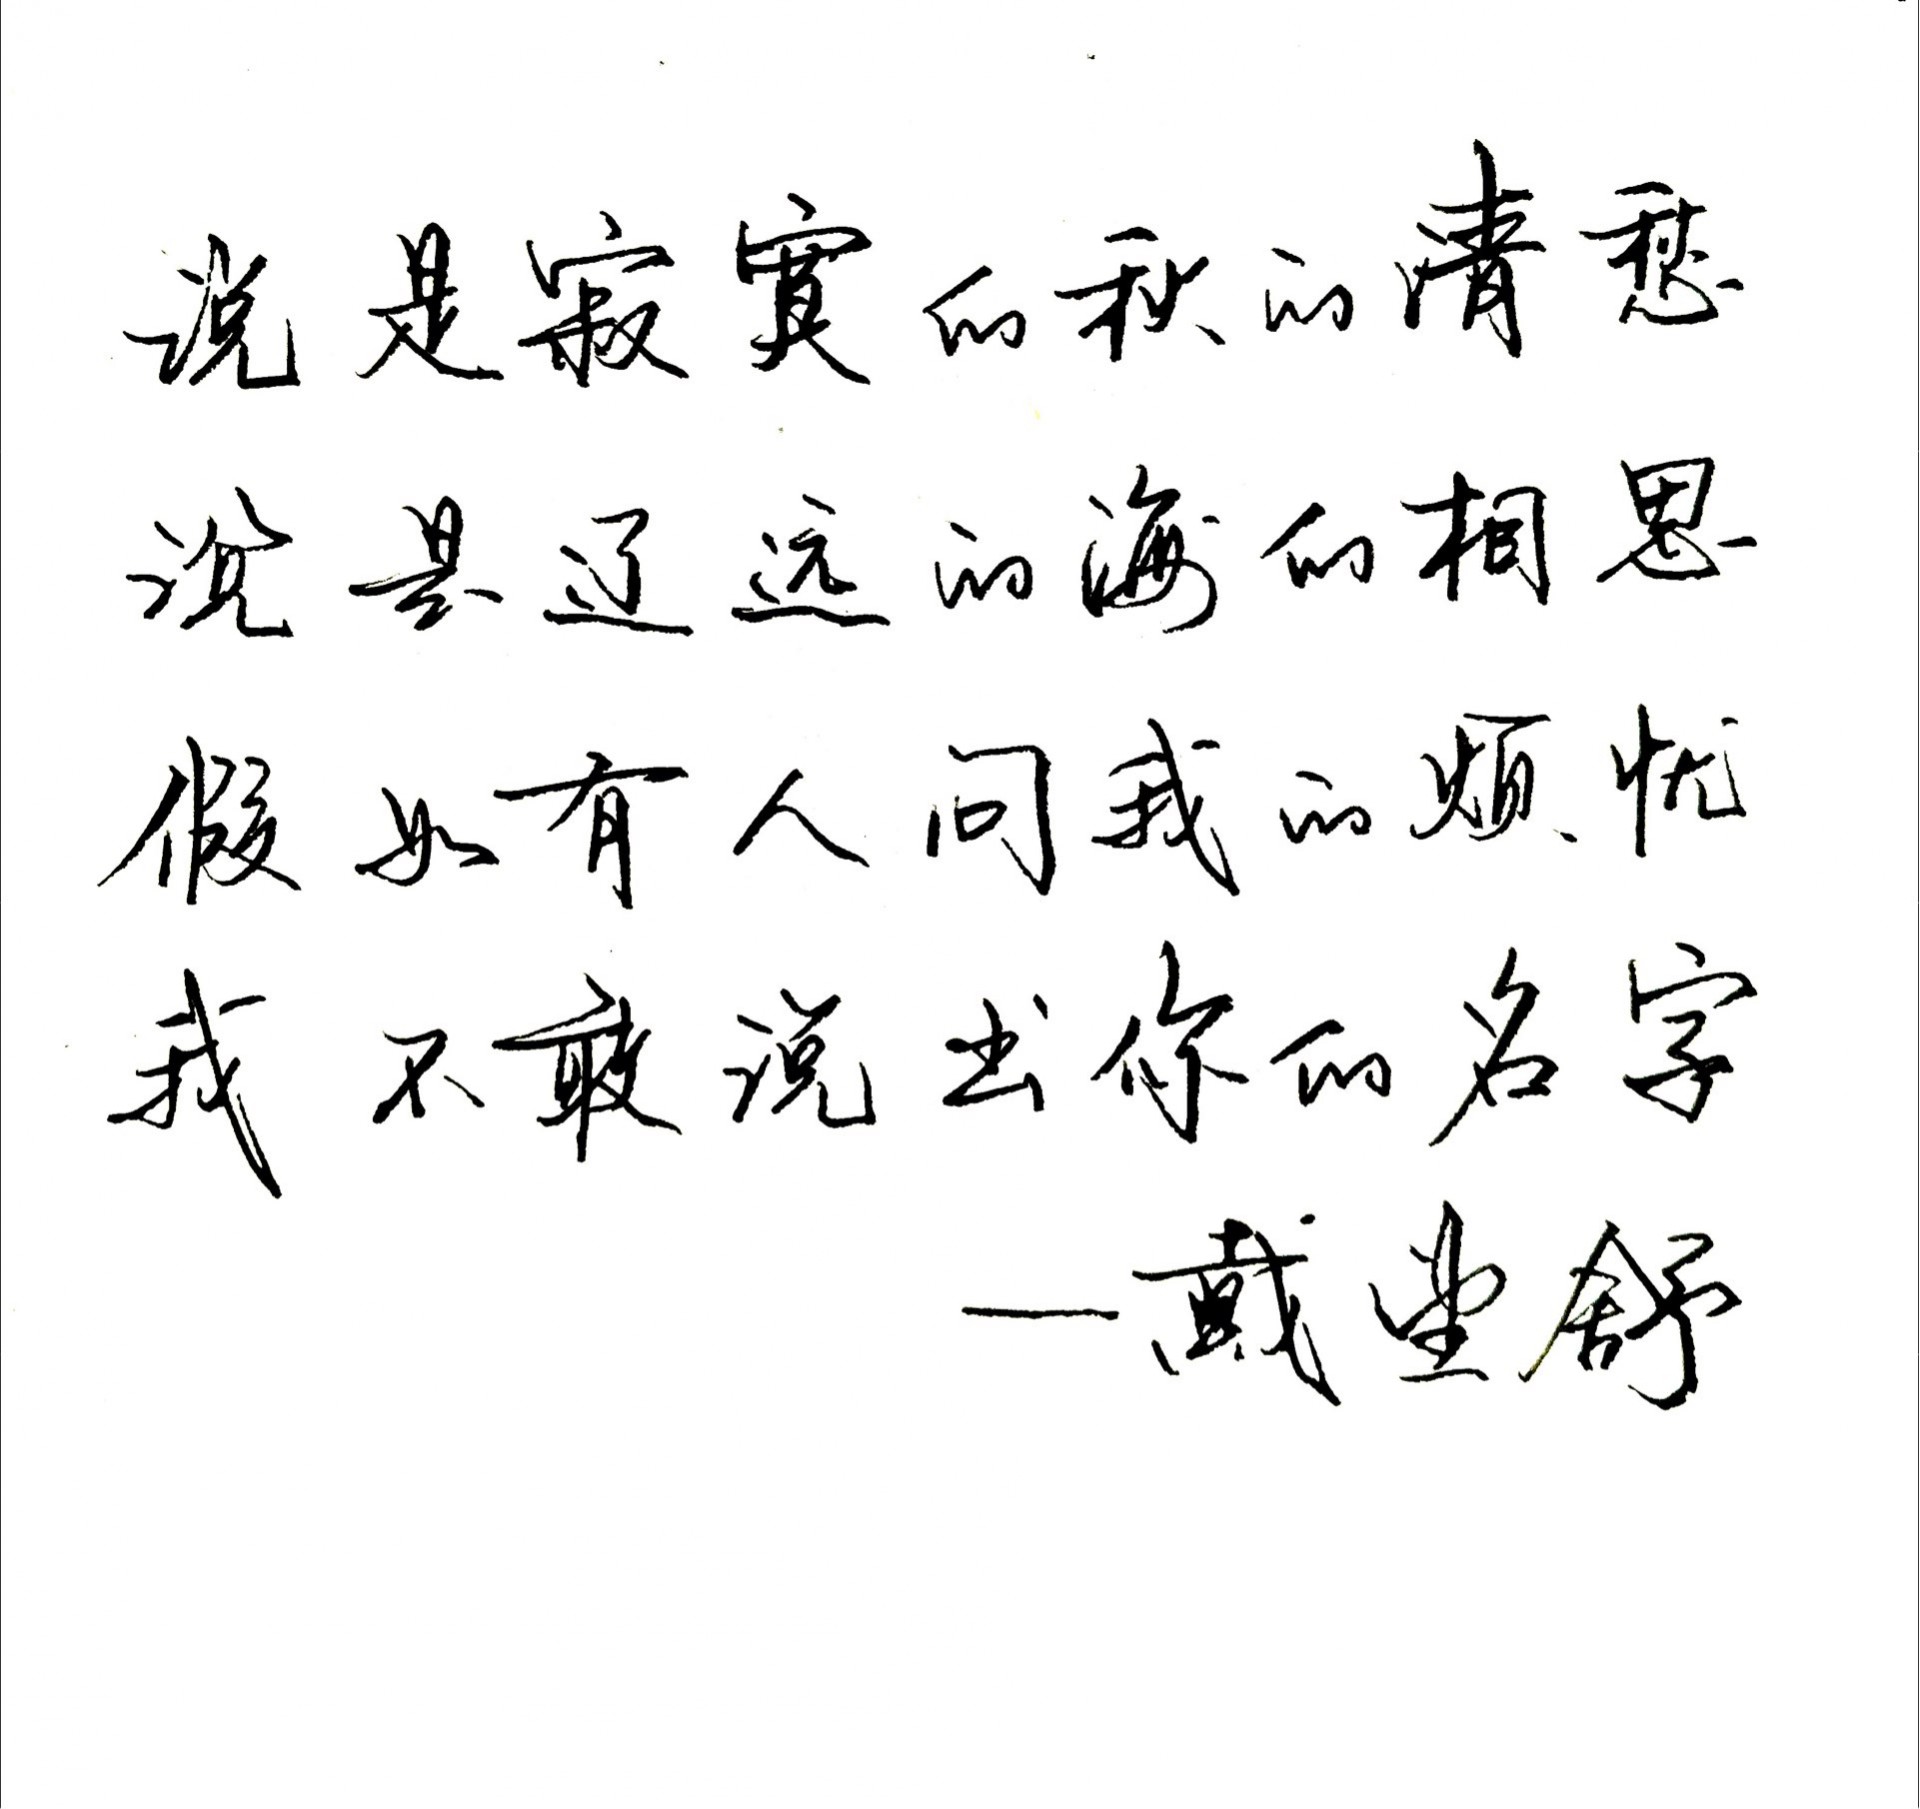 说是寂寞的秋的清愁
说是辽远的海的相思
假如有人问我的烦忧
我不敢说出你的名字
—戴望舒